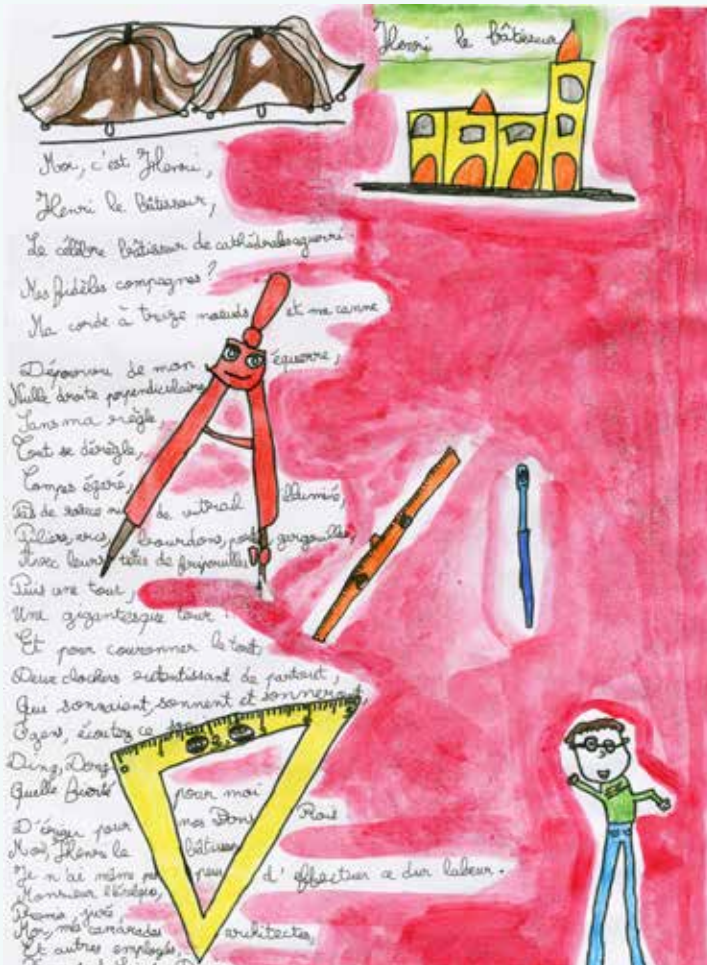 Henri le bâtisseur
Moi, c'est Henri,
Henri le bâtisseur,
Le célèbre bâtisseur de cathédrales aguerri.
Mes fidèles compagnes?
Ma corde à treize nœuds et ma canne
Dépourvu de mon équerre,
Nulle droite perpendiculaire
Sans ma règle,
Tout se dérègle,
Compas égaré,
Pas de rosace ni de vitrail illuminé,
Piliers, arcs, bourdons, gargouilles,
Avec leurs têtes de fripouilles
Puis une tour,
Une gigantesque tour
Et pour couronner le tout
Deux clochers retentissant de partout,
Qui sonnaient, sonnent et sonneront,
écoutez ce
Ding, Dong
Quelle fierté pour moi
D'ériger pour nos Bons Rois
Moi, Henri le bâtisseur
Je n'ai même pas peur d'effectuer ce dur labeur.
Monsieur l'évêque,
Promis, juré,
Moi, mes camarades architectes,
Et autres employés,